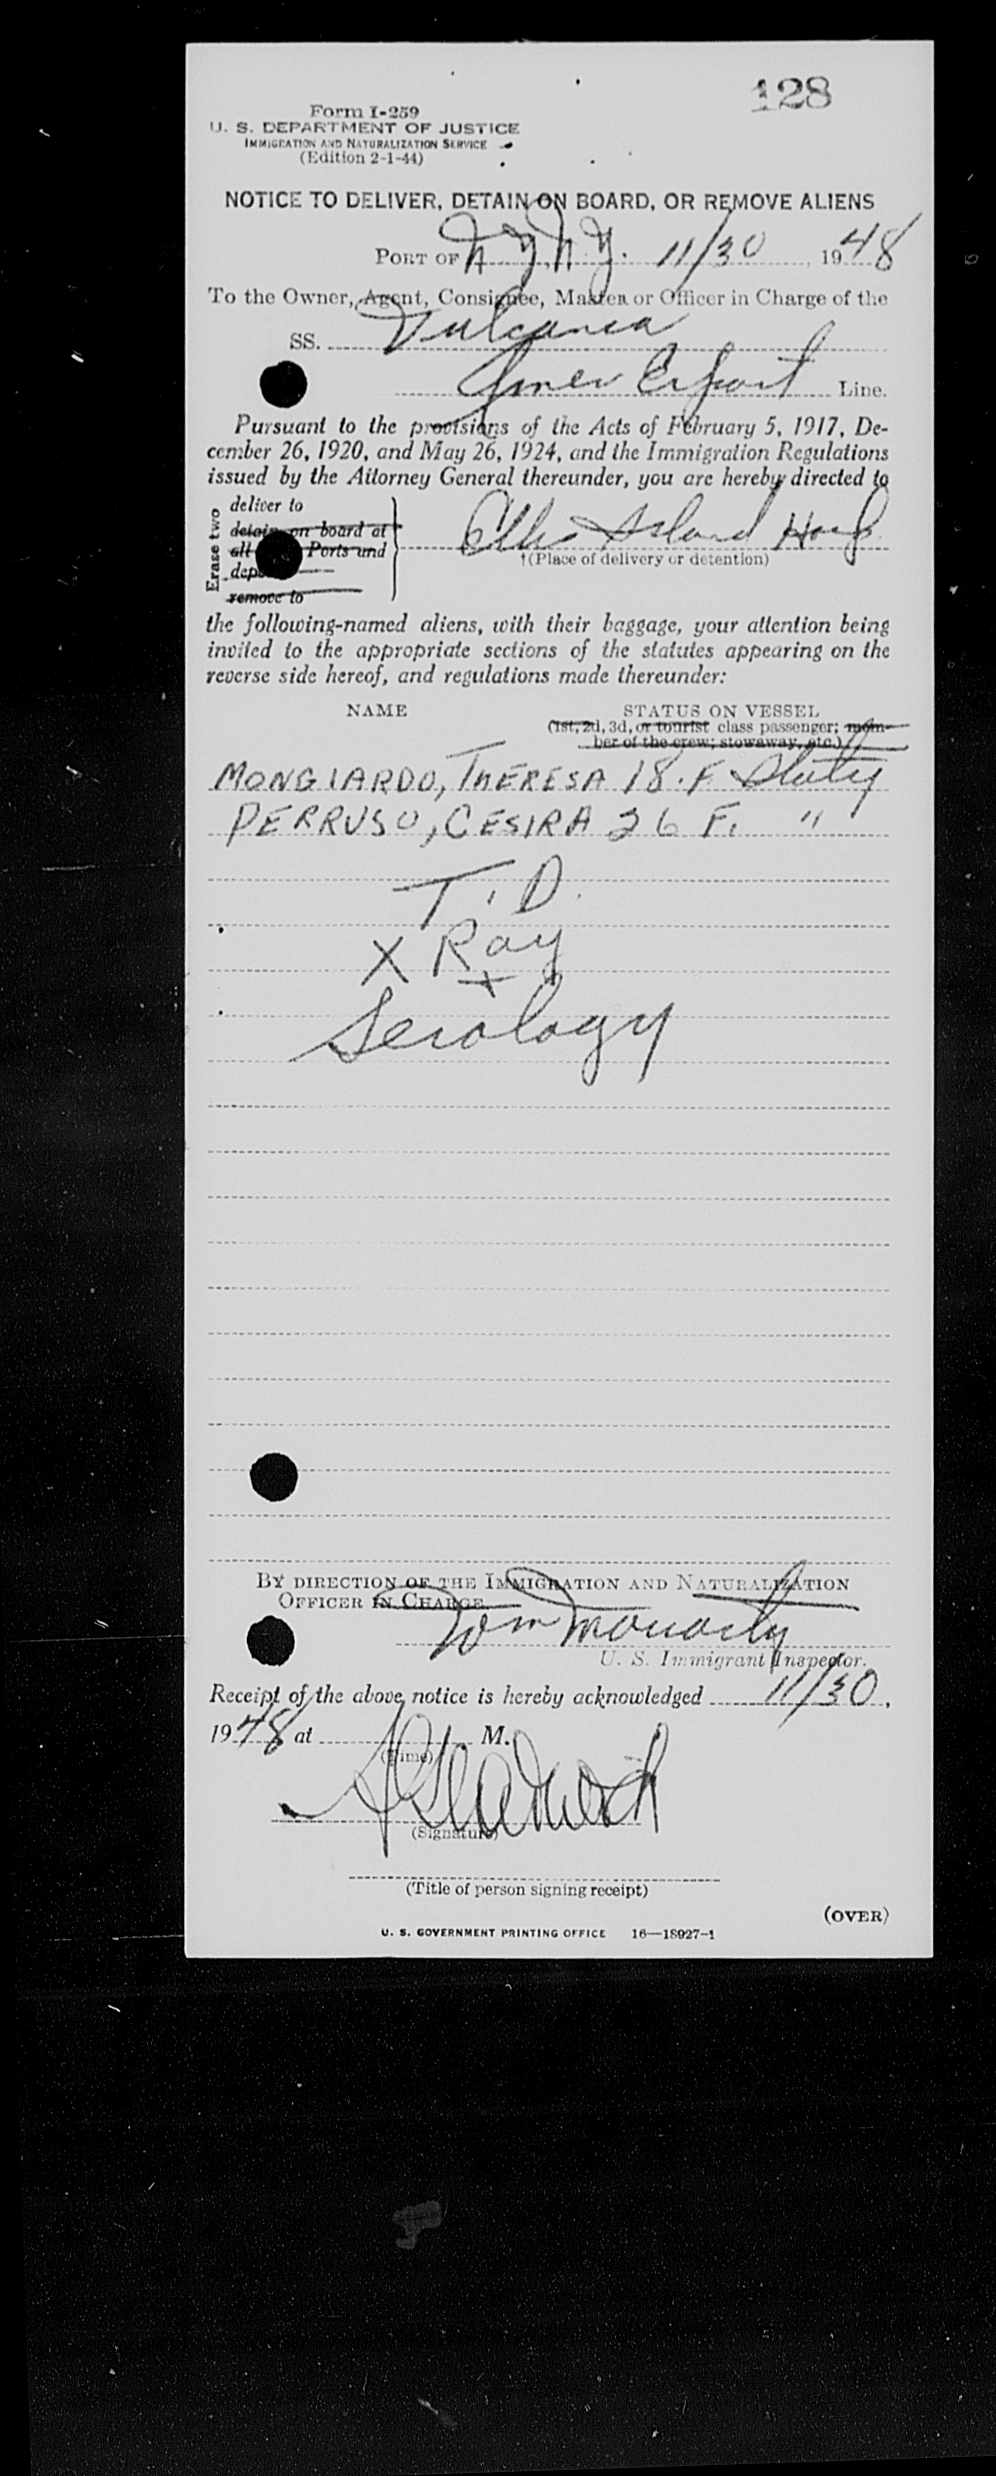 128
Form I-259
U. S. DEPARTMENT OF JUSTICE
IMMIGRATION AND NATURALIZATION SERVICE
(Edition 2-1-44)
NOTICE TO DELIVER, DETAIN ON BOARD, OR REMOVE ALIENS
PORT OF N.Y. N.Y. 11/30, 1948
To the Owner, Agent, Consignee, Master or Officer in Charge of the
SS. Vulcania
Amer Export Line.
Pursuant to the provisions of the Acts of February 5, 1917, De-
cember 26, 1920, and May 26, 1924, and the Immigration Regulations
issued by the Attorney General thereunder, you are hereby directed to
Erase two
deliver to
detain on board at
all Ports and
remove to
Ellis Island Hosp.
†(Place of delivery or detention)
the following-named aliens, with their baggage, your attention being
invited to the appropriate sections of the statutes appearing on the
reverse side hereof, and regulations made thereunder:
NAME STATUS ON VESSEL
(1st, 2d, 3d, or tourist class passenger; mem-
ber of the crew; stowaway, etc.)
MONGIARDO, THERESA 18. F
PERRUSO, CESIRA 26 F. "
T. D.
X Ray
+
Serology
BY DIRECTION OF THE IMMIGRATION AND NATURALIZATION
OFFICER IN CHARGE.
Wm Moriarty
U. S. Immigrant Inspector.
Receipt of the above notice is hereby acknowledged 11/30,
1948 at M.
(Time)
(Signature)
(Title of person signing receipt)
(OVER)
U. S. GOVERNMENT PRINTING OFFICE 16—18927-1